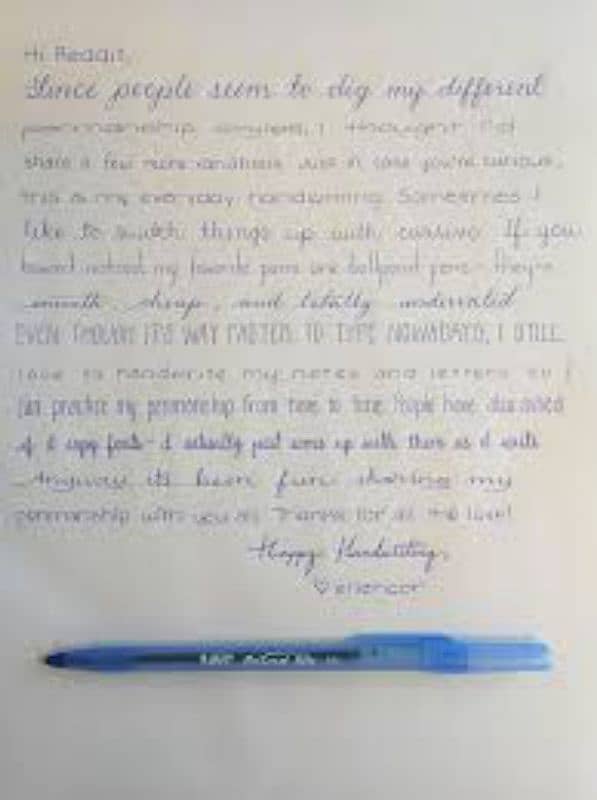 Hi Reddit,
Since people seem to dig my different
penmanship styles, I thought I'd
share a few more variations. Just in case you're curious,
this is my everyday handwriting. Sometimes I
like to switch things up with cursive. If you
haven't noticed, my favorite pens are ballpoint pens - they're
smooth, cheap, and totally underrated
EVEN THOUGH IT'S WAY FASTER TO TYPE NOWADAYS, I STILL
love to handwrite my notes and letters so I
can practice my penmanship from time to time. People have also asked
if I copy fonts - I actually just come up with them as I write
Anyway, it's been fun sharing my
penmanship with you all. Thanks for all the love!
Happy Handwriting,
♡
BIC